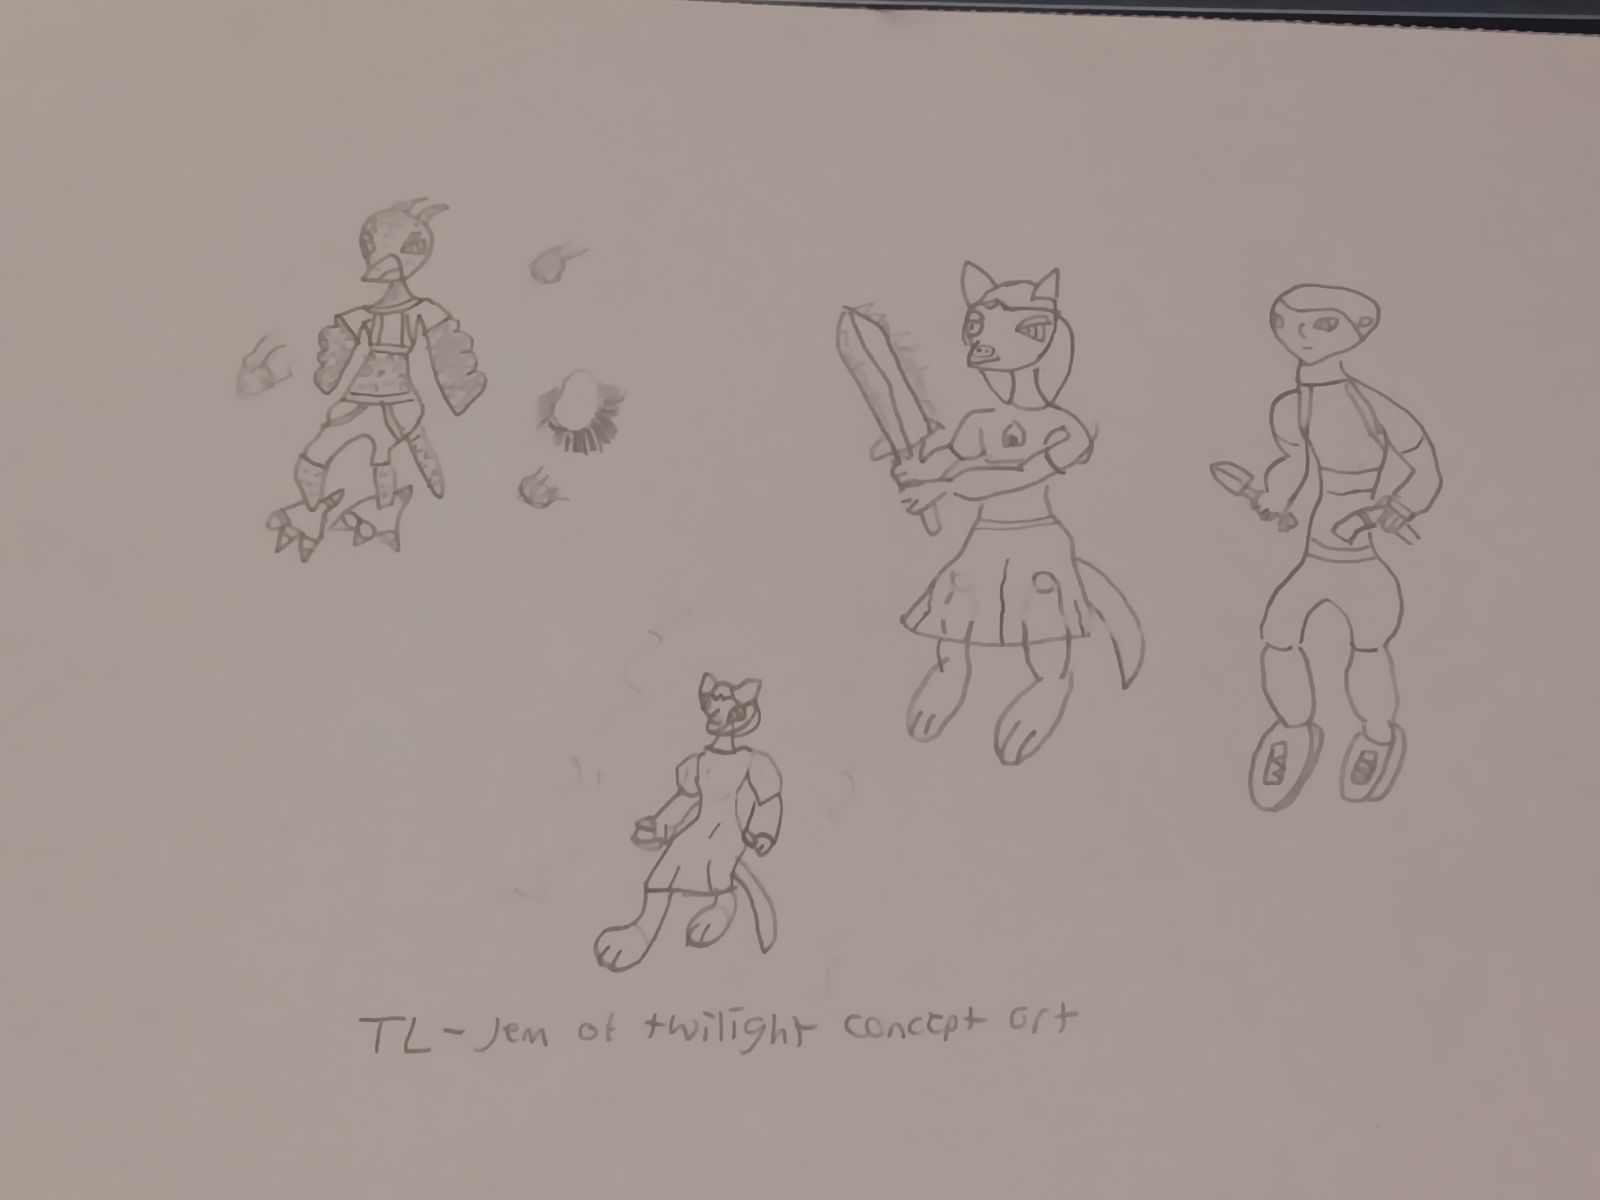 TL-Jem of twilight concept art